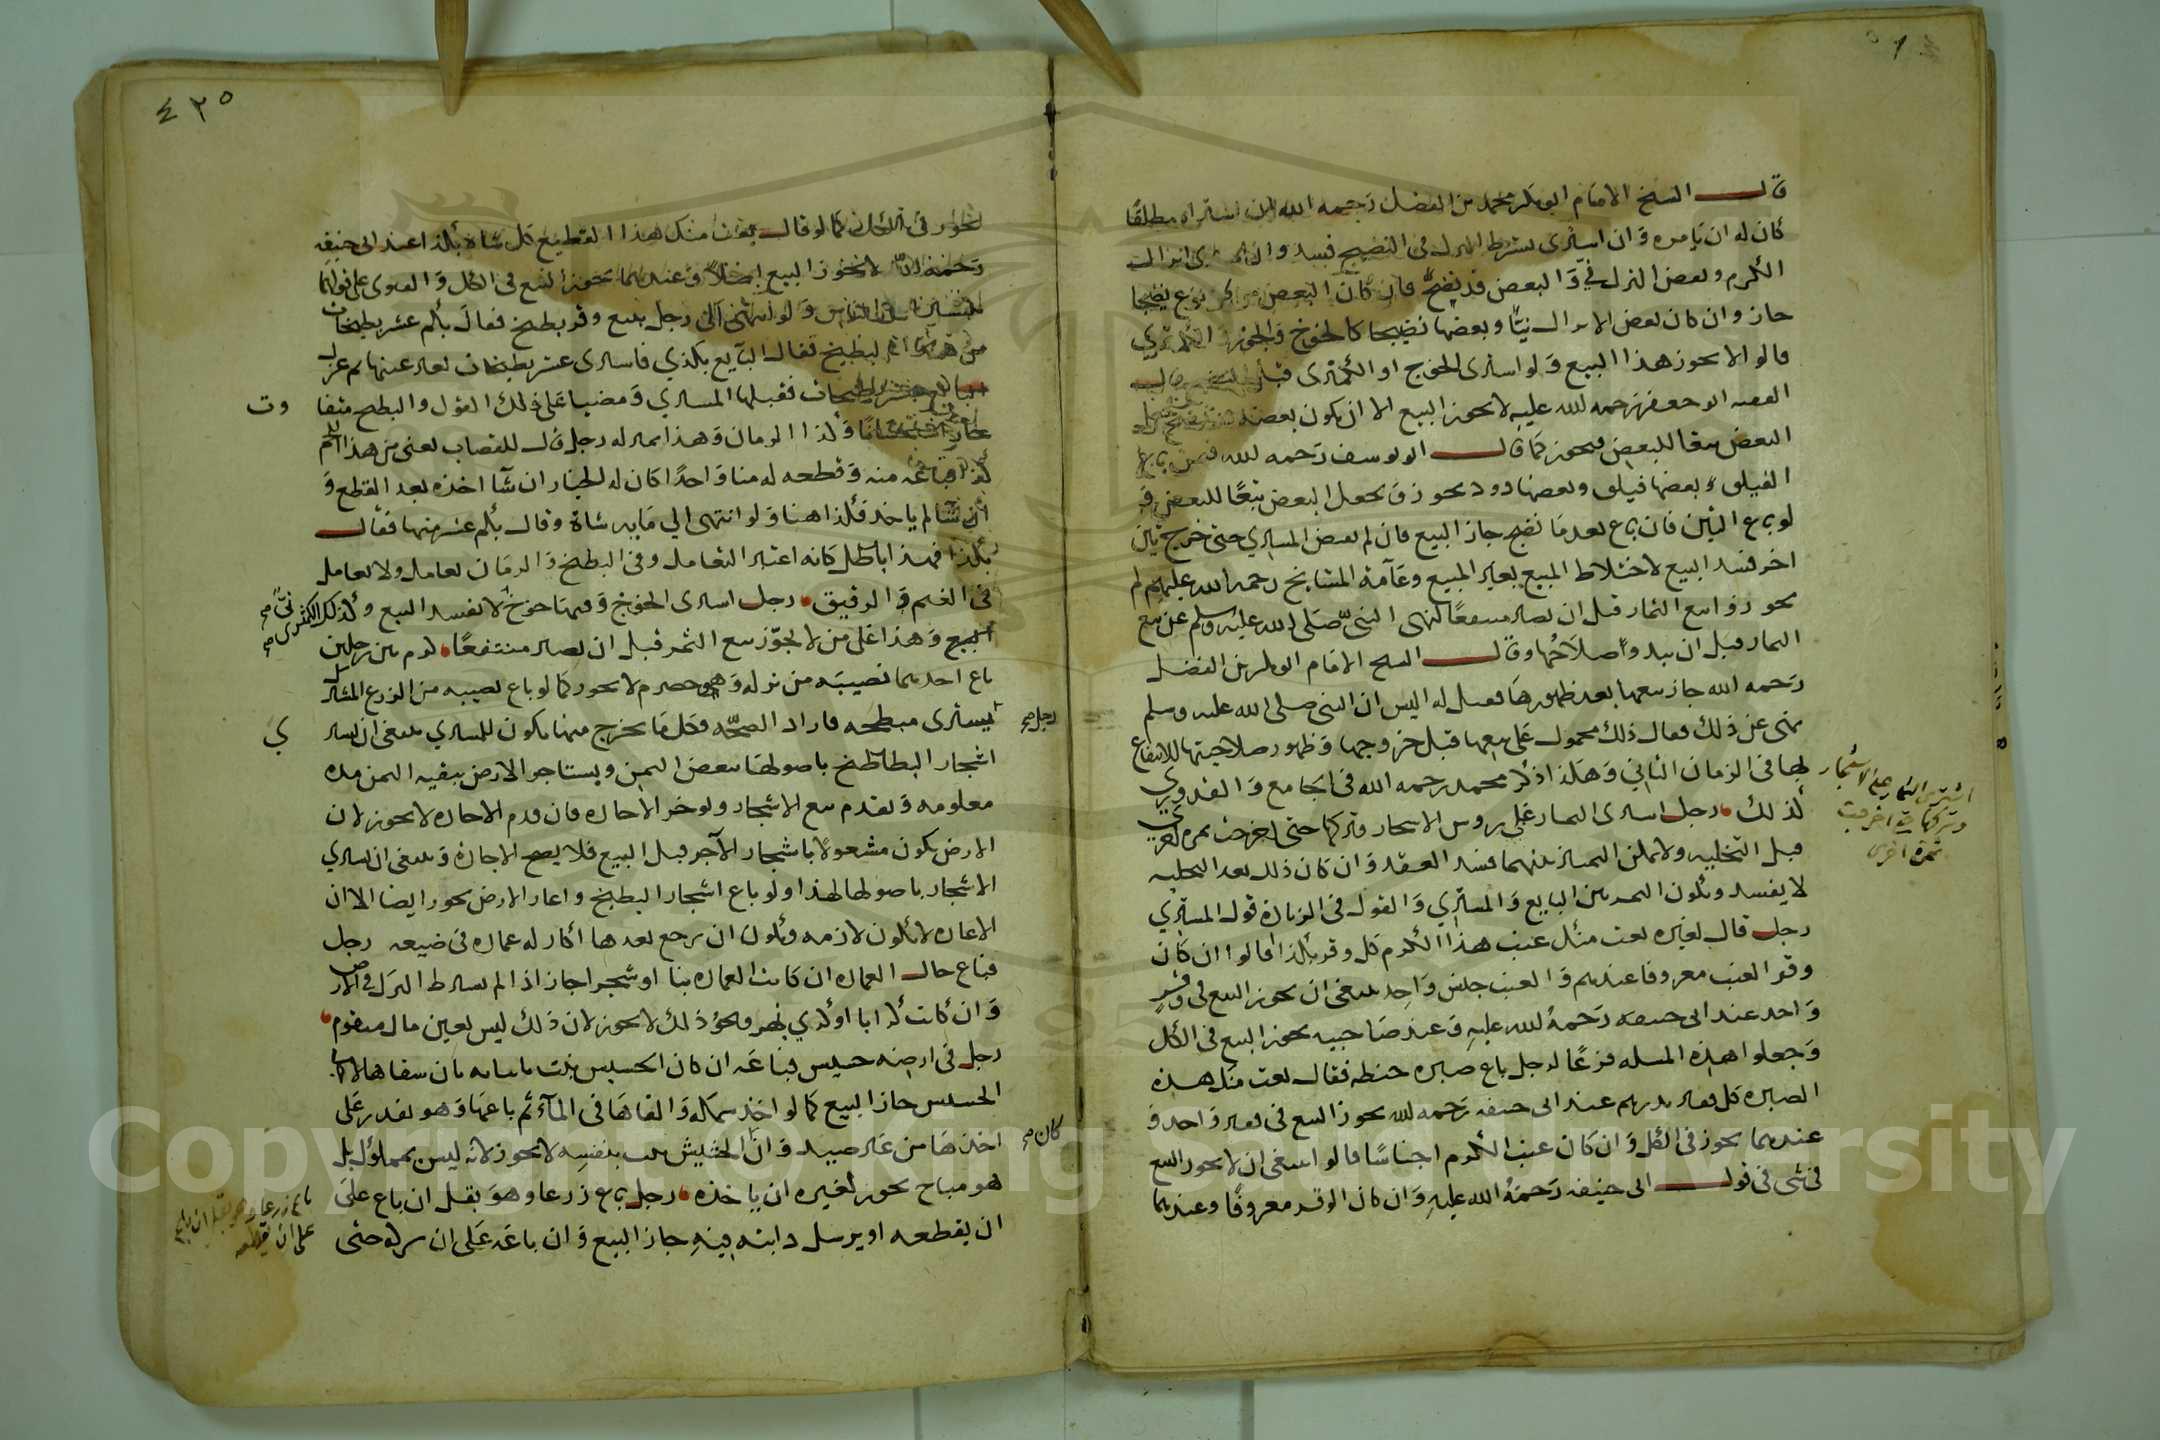 قال الشيخ الامام ابو بكر محمد بن الفضل رحمه الله ان اشتراه مطلقا
كان له ان يامره وان اشترى بشرط الترك الى النضج فسد
الكرم وبعض النزل ني والبعض قد نضج فان كان البعض
جاز وان كان بعض الانزال نيا وبعضها نضيجا كالخوخ والجوز
قالوا لا يجوز هذا البيع ولو اشترى الخوخ او الكمثرى قبل
الفقيه ابو جعفر رحمه الله عليه لا يجوز البيع الا ان يكون بعضه
البعض تبعا للبعض فيجوز كما قال ابو يوسف رحمه الله فيمن باع
الفيلق وبعضها فيلق وبعضها دود يجوز ويجعل البعض تبعا للبعض
لو باع التين فان باع بعد ما نضج جاز البيع فان لم يقبض المشتري حتى خرج تين
اخر فسد البيع لاختلاط المبيع بغير المبيع وعامة المشايخ رحمة الله عليهم لم
يجوزوا بيع الثمار قبل ان يصير منتفعا لنهي النبي صلى الله عليه وسلم عن بيع
الثمار قبل ان يبدو صلاحها وقال الشيخ الامام ابو بكر بن الفضل
رحمه الله جاز بيعها بعد ظهورها فقيل له اليس ان النبي صلى الله عليه وسلم
نهى عن ذلك فقال ذلك محمول على بيعها قبل خروجها وظهور صلاحيتها للانتفاع
بها في الزمان الثاني وهكذا ذكر محمد رحمه الله في الجامع والقدوري
كذلك رجل اشترى الثمار على روس الاشجار وتركها حتى اخرجت ثمرة اخرى
قبل التخلية ولا يمكن التمييز بينهما فسد العقد وان كان ذلك بعد التخلية
لا يفسد وتكون الثمر بين البايع والمشتري والقول في الزيادة قول المشتري
رجل قال لغيره بعت منك عنب هذا الكرم كل وقر بكذا قالوا ان كان
وقر العنب معروفا عندهم والعنب جنس واحد ينبغي ان يجوز البيع في وقر
واحد عند ابي حنيفة رحمة الله عليه وعند صاحبيه يجوز البيع في الكل
وجعلوا هذه المسلة فرعا لرجل باع صبرة حنطة فقال بعت منك هذه
الصبرة كل قفيز بدرهم عند ابي حنيفة رحمه الله يجوز البيع في قفيز واحد و
عندهما يجوز في الكل وان كان عنب الكرم اجناسا قالوا ينبغي ان لا يجوز البيع
في شي في قول ابي حنيفة رحمة الله عليه وان كان الوقر معروفا وعندهما
اشترى الثمار على الاشجار
وتركها حتى اخرجت
ثمرة اخرى
٤٣٥
يجوز في الكل كما لو قال بعت منك هذا القطيع كل شاة بكذا عند ابي حنيفة
رحمه الله لا يجوز البيع اصلا وعندهما يجوز البيع في الكل والفتوى على قولهما
ولو انتهى الى رجل يبيع وقر بطيخ فقال بكم عشر بطيخات
من هذا البطيخ فقال البايع بكذي فاشترى عشر بطيخات بغير عينها ثم عزل
البايع عشر بطيخات فقبلها المشتري ومضيا على ذلك القول والبطيخ متفا
وت
جاز استحسانا وكذا الرمان وهذا بمنزلة رجل قال للقصاب بعني من هذا اللحم
كذا فباعه منه وقطعه له منا واحدا كان له الخيار ان شا اخذه بعد القطع و
ان شا لم ياخذ فكذا هنا ولو انتهى الى ماية شاة وقال بكم عشر منها فقال
بكذا فهذا باطل كانه اعتبر التعامل وفي البطيخ والرمان تعامل ولا تعامل
في الغنم والرقيق رجل اشترى الخوخ وفيها خوخ لا يفسد البيع وكذلك الكمثرى
ني صح
البيع وهذا على من لا يجوز بيع الثمر قبل ان يصير منتفعا كرم بين رجلين
باع احدهما نصيبه من نزله وهو حصرم لا يجوز كما لو باع نصيبه من الزرع المشترك
رجل صح
يشترى مبطخة فاراد الصحة وكل ما يخرج منها يكون للمشتري ينبغي ان يشتر
ي
اشجار البطاطيخ باصولها ببعض الثمن ويستاجر الارض ببقية الثمن مدة
معلومة ويقدم بيع الاشجار ويوخر الاجارة فان قدم الاجارة لا يجوز لان
الارض يكون مشغولا باشجار الآجر قبل البيع فلا يصح الاجارة وينبغي ان يشتري
الاشجار باصولها لهذا ولو باع اشجار البطيخ واعار الارض يجوز ايضا الا ان
الاعارة لا تكون لازمة ويكون ان يرجع بعدها اكار له عمارة في ضيعة رجل
فباع حال العمارة ان كانت العمارة بنا او شجرا جاز اذا لم يشترط الترك في الارض
وان كانت كرابا او كري نهر ونحو ذلك لا يجوز لان ذلك ليس بعين مال متقوم
رجل في ارضه حشيش فباعه ان كان الحشيش نبت بانباته بان سقاها
الحشيش جاز البيع كما لو اخذ سمكة والقاها في الماء ثم باعها وهو يقدر على
كان صح
اخذها من غير صيد وان الحشيش نبت بنفسه لا يجوز لانه ليس بمملوك بل
هو مباح يجوز لغيره ان ياخذه رجل باع زرعا وهو بقل ان باع على
ان يقطعه او يرسل دابته فيه جاز البيع وان باعه على ان يتركه حتى
باع زرعا وهو بقل ان باع
على ان يقطعه
Copyright © King Saud University